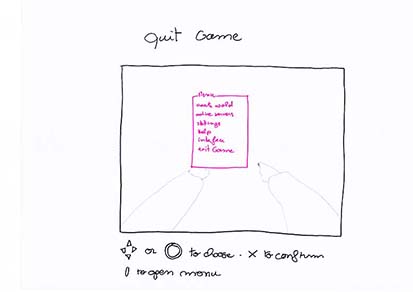 Quit Game
Menu
create world
online servers
settings
help
interface
exit Game
or to choose. X to confirm
to open menu